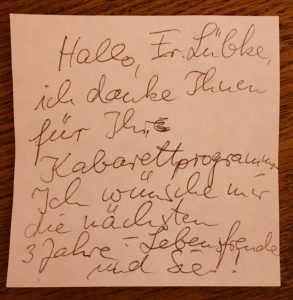 Hallo, Fr. Lübke,
ich danke Ihnen
für Ihr
Kabarettprogramm
Ich wünsche mir
die nächsten
3 Jahre - Lebensfreude
und Sie!